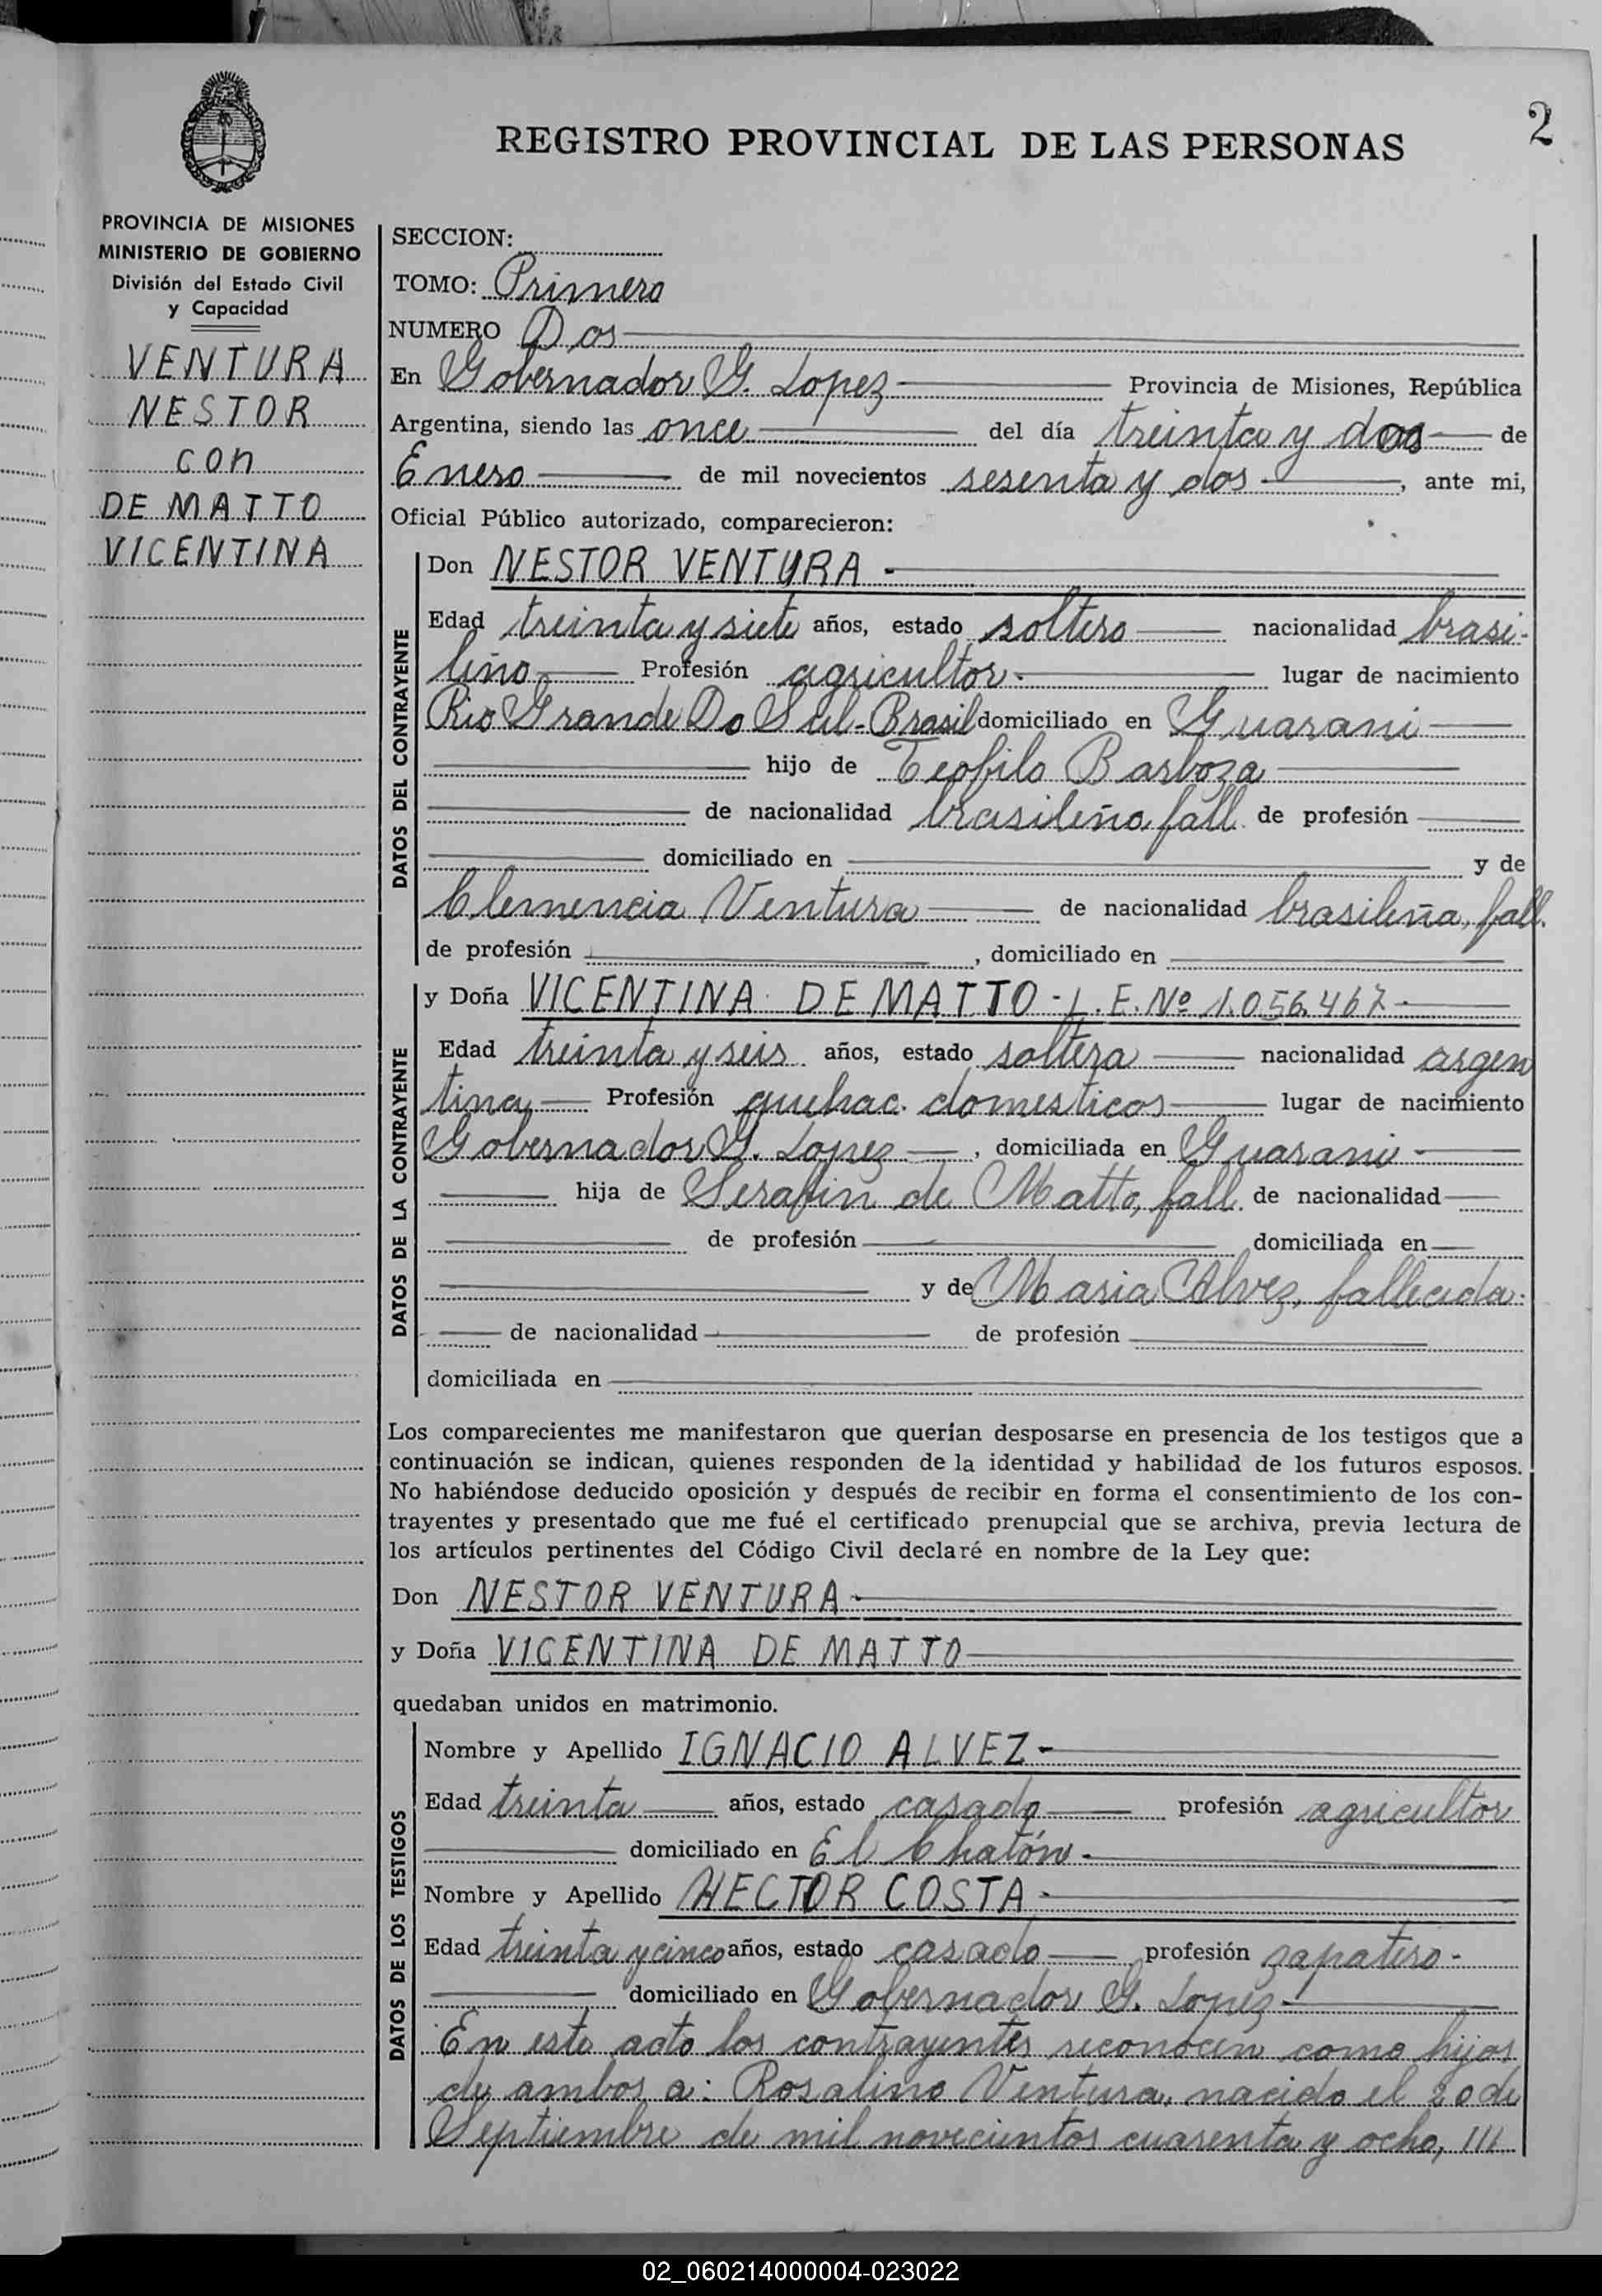 2
REGISTRO PROVINCIAL DE LAS PERSONAS
PROVINCIA DE MISIONES
MINISTERIO DE GOBIERNO
División del Estado Civil
y Capacidad
VENTURA
NESTOR
con
DE MATTO
VICENTINA
SECCION:
TOMO: Primero
NUMERO Dos
En Gobernador G. Lopez Provincia de Misiones, República
Argentina, siendo las once del día treinta y dos de
Enero de mil novecientos sesenta y dos, ante mi,
Oficial Público autorizado, comparecieron:
DATOS DEL CONTRAYENTE
Don NESTOR VENTURA -
Edad treinta y siete años, estado soltero nacionalidad brasi-
leño Profesión agricultor. lugar de nacimiento
Rio Grande Do Sul-Brasil domiciliado en Guarani
hijo de Teofilo Barboza
de nacionalidad brasileña, fall. de profesión
domiciliado en y de
Clemencia Ventura de nacionalidad brasileña, fall.
de profesión , domiciliado en
DATOS DE LA CONTRAYENTE
y Doña VICENTINA DE MATTO - L.E. Nº 1.056.467.
Edad treinta y seis años, estado soltera nacionalidad argen
tina, Profesión quehac. domesticos lugar de nacimiento
Gobernador G. Lopez , domiciliada en Guarani -
hija de Serafin de Matto, fall. de nacionalidad
de profesión domiciliada en
y de Maria Alvez, fallecida.
de nacionalidad de profesión
domiciliada en
Los comparecientes me manifestaron que querían desposarse en presencia de los testigos que a
continuación se indican, quienes responden de la identidad y habilidad de los futuros esposos.
No habiéndose deducido oposición y después de recibir en forma el consentimiento de los con-
trayentes y presentado que me fué el certificado prenupcial que se archiva, previa lectura de
los artículos pertinentes del Código Civil declaré en nombre de la Ley que:
Don NESTOR VENTURA -
y Doña VICENTINA DE MATTO
quedaban unidos en matrimonio.
DATOS DE LOS TESTIGOS
Nombre y Apellido IGNACIO ALVEZ -
Edad treinta años, estado casado profesión agricultor
domiciliado en El Chatón -
Nombre y Apellido HECTOR COSTA -
Edad treinta y cinco años, estado casado profesión zapatero -
domiciliado en Gobernador G. Lopez -
En este acto los contrayentes reconocen como hijos
de ambos a: Rosalino Ventura, nacido el 20 de
Septiembre de mil novecientos cuarenta y ocho, ///
02_060214000004-023022